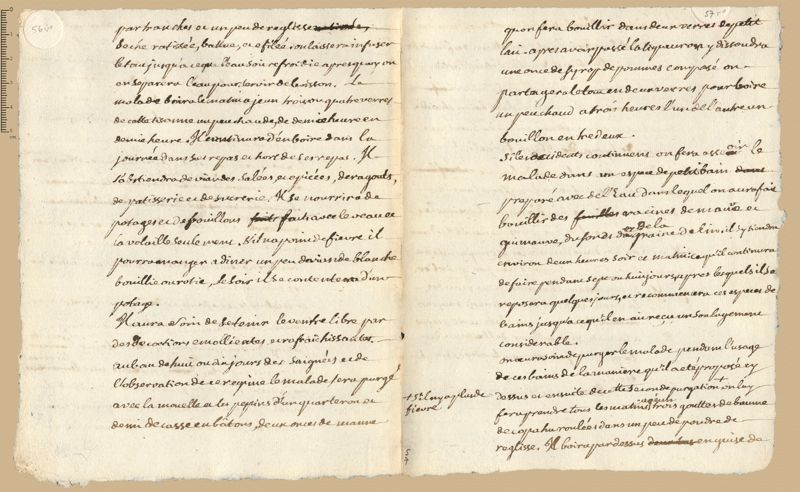 56 v°
par tranches et un peu de reglisse
seche ratissée, battue, et efilée. on laissera infuser
le tout jusqua ce que l'eau soit refroidie apres quoy on
en separera l'eau pour servir de boisson. Le
malade boira le matin a jeun trois ou quatre verres
de cette tisanne un peu chaude, de demie heure en
demie heure. Il continuera d'en boire dans la
journée dans ses repas et hors de ses repas. Il
s'abstiendra de viandes salées et epicées, de ragouts,
de patisserie et de sucrerie. Il se nourrira de
potages et de bouillons faits avec le veau et
la volaille seulement. S'il n'a point de fievre il
pourra manger a diner un peu de viande blanche
bouillie ou rotie, le soir il se contentera d'un
potage.
Il aura soin de se tenir le ventre libre par
des decoctions emollientes et rafraichissantes.
au bout de huit ou dix jours des saignées et de
l'observation de ce regime le malade sera purgé
avec la mouelle et les pepins d'un quarteron et
demi de casse en bâtons, deux onces de manne
57 r°
qu'on fera bouillir dans deux verres de petit
lait. apres avoir passé la liqueur on y dissoudra
une once de syrop de pommes composé on
partagera le tout en deux verres pour boire
un peu chaud a trois heures l'un de l'autre un
bouillon entre deux.
Si les accidents continuent on fera asseoir le
malade dans un espece de petit bain
preparé avec de l'eau dans lequel on aura fait
bouillir des racines de mauve et
guimauve, du son et de la graine de lin. il s'y tiendra
environ deux heures soir et matin ce qu'il continuera
de faire pendant sept ou huit jours apres lesquels il se
reposera quelques jours, et recommencera ces especes de
bains jusqu'a ce qu'il en ait reçu un soulagement
considerable.
on aura soin de purger le malade pendant l'usage
de ces bains de la maniere qu'il a eté proposé cy
dessus et ensuite de cette seconde purgation + on luy
+ S'il n'y a plus de
fievre
fera prendre tous les matins a jeun trois gouttes de baume
de copahu roulées dans un peu de poudre de
reglisse. Il boira par dessus en guise de